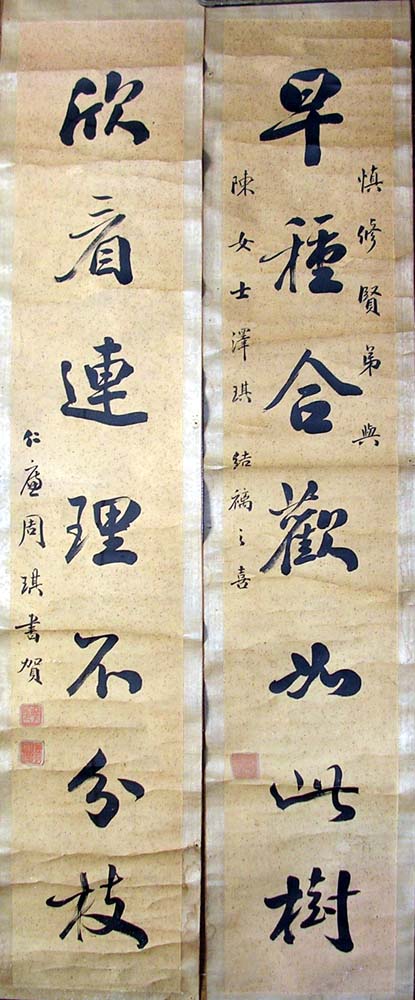 早種合歡如此樹
慎修賢弟與
陳女士澤琪結褵之喜
欣看連理不分枝
仁廬周琪書賀